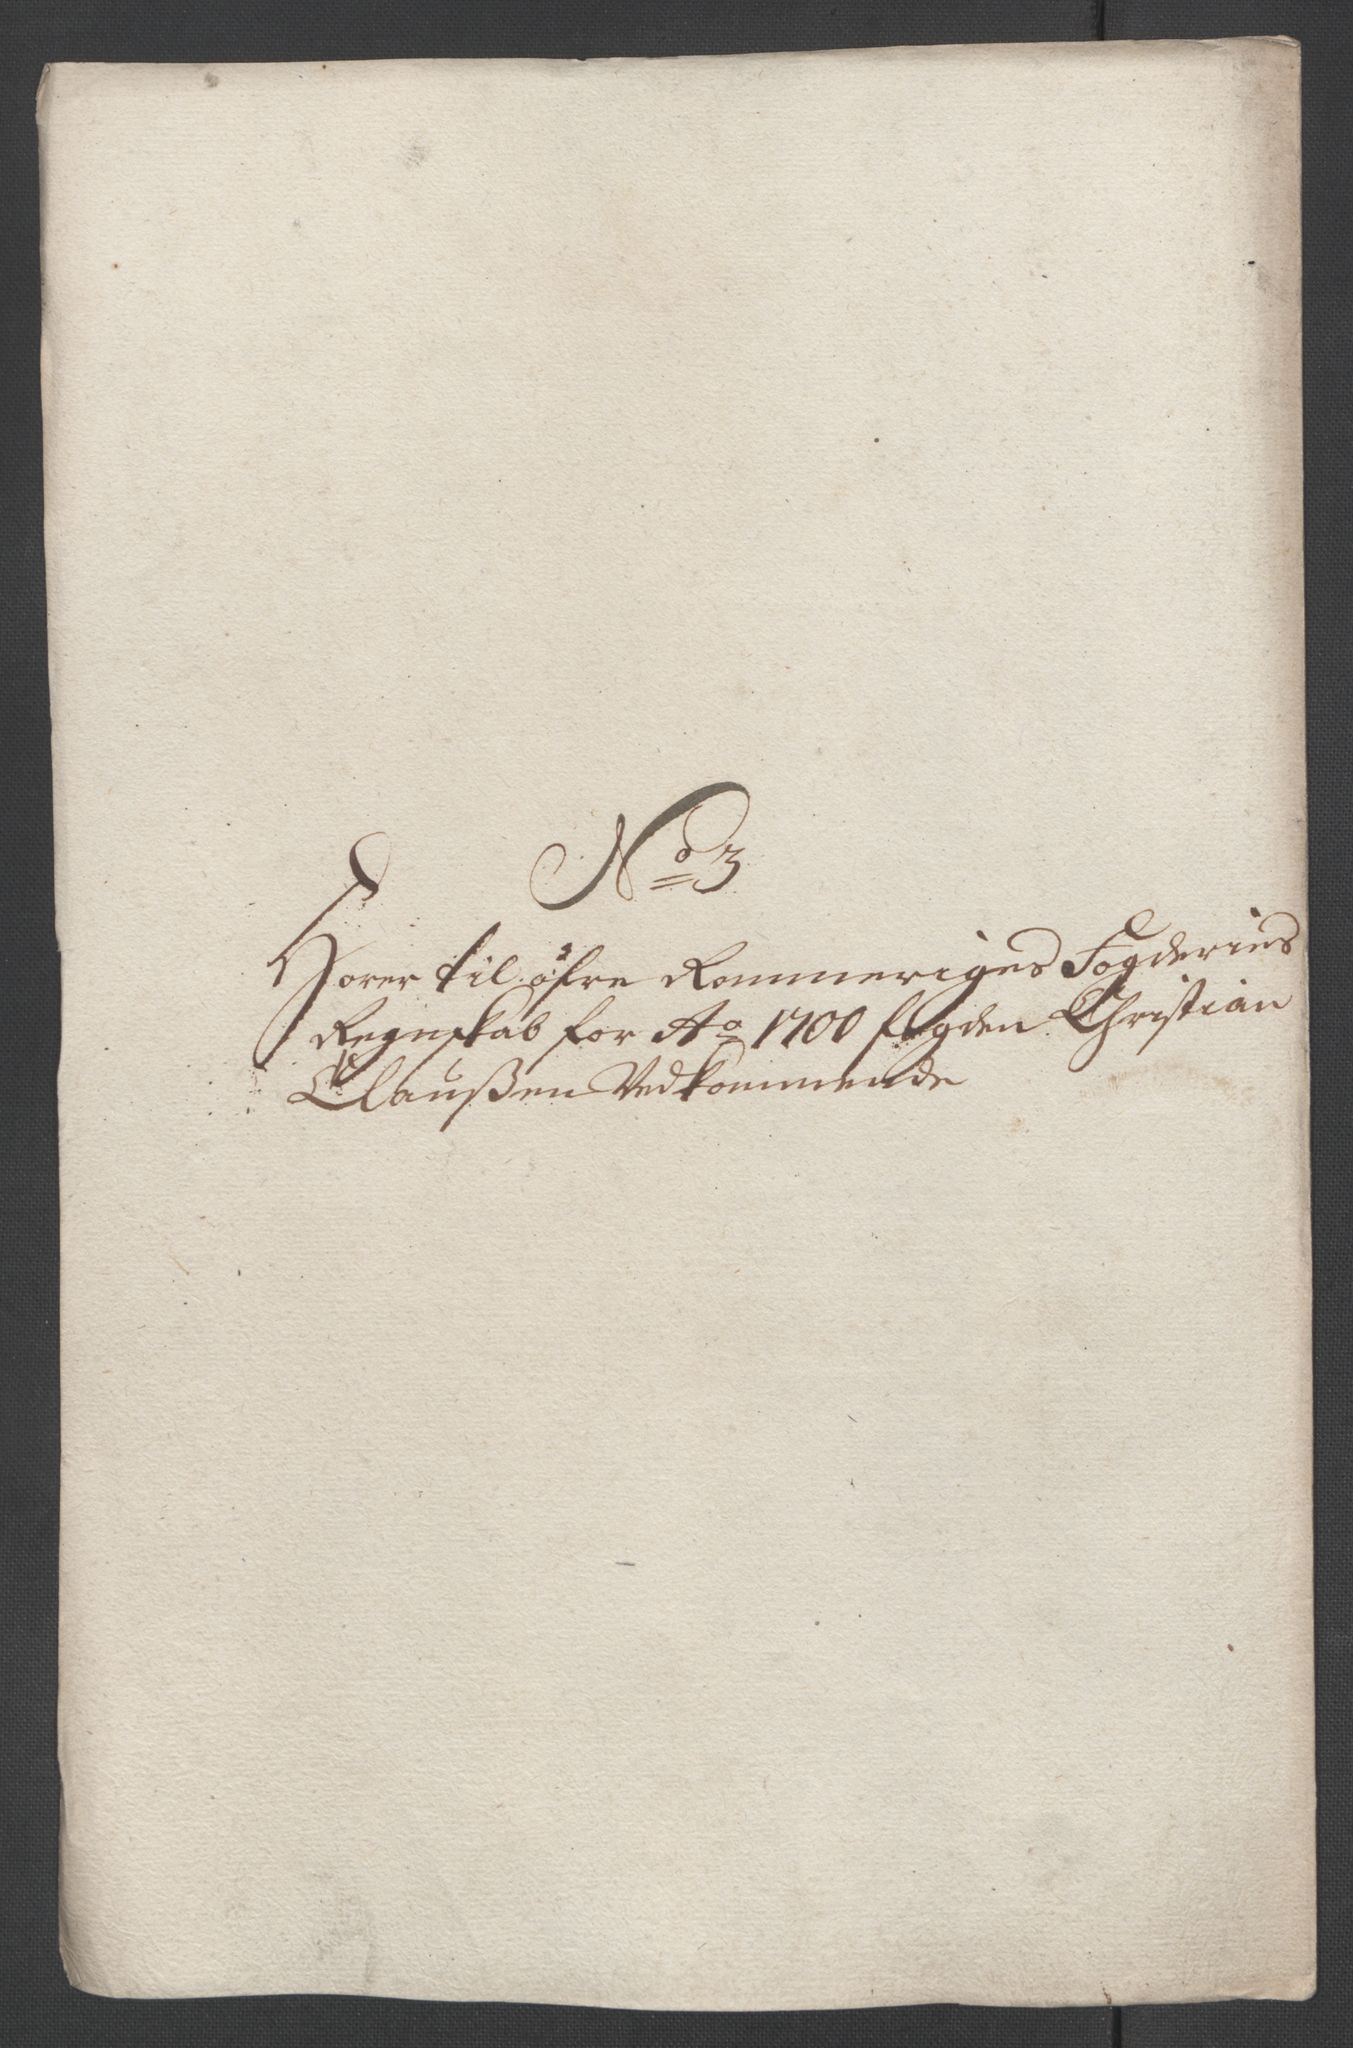 No 3
Hører til øfre Rommeriges Fogderies
Regnskab for Ao 1700 fogden Christian
Claußen Vedkommende